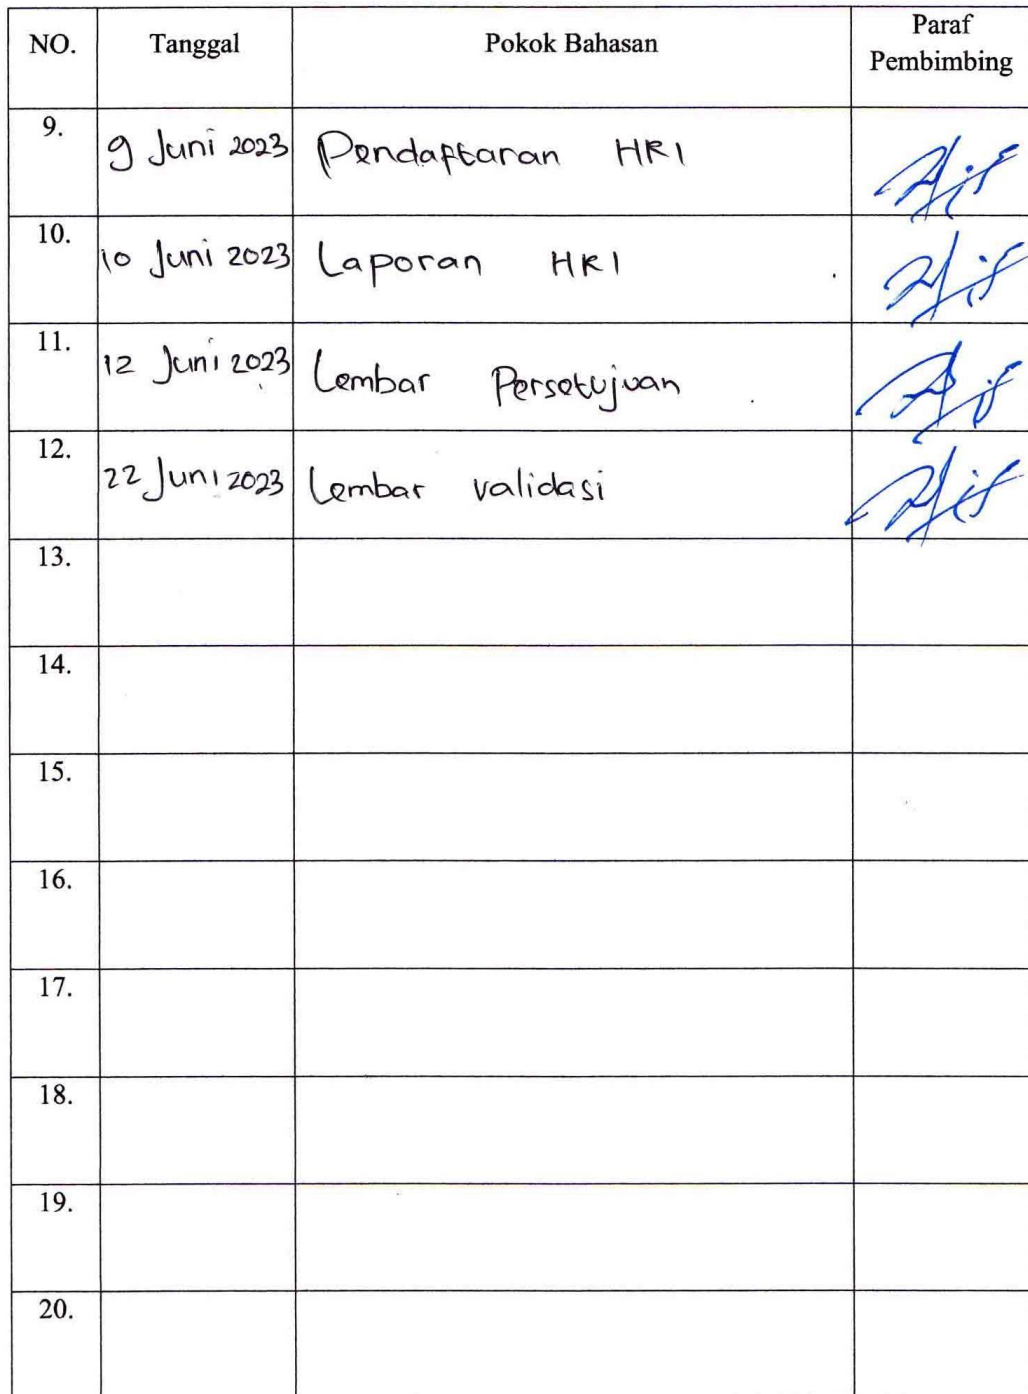 NO. Tanggal Pokok Bahasan Paraf Pembimbing
9. 9 Juni 2023 Pendaftaran HKI
10. 10 Juni 2023 Laporan HKI
11. 12 Juni 2023 Lembar Persetujuan
12. 22 Juni 2023 Lembar validasi
13.
14.
15.
16.
17.
18.
19.
20.